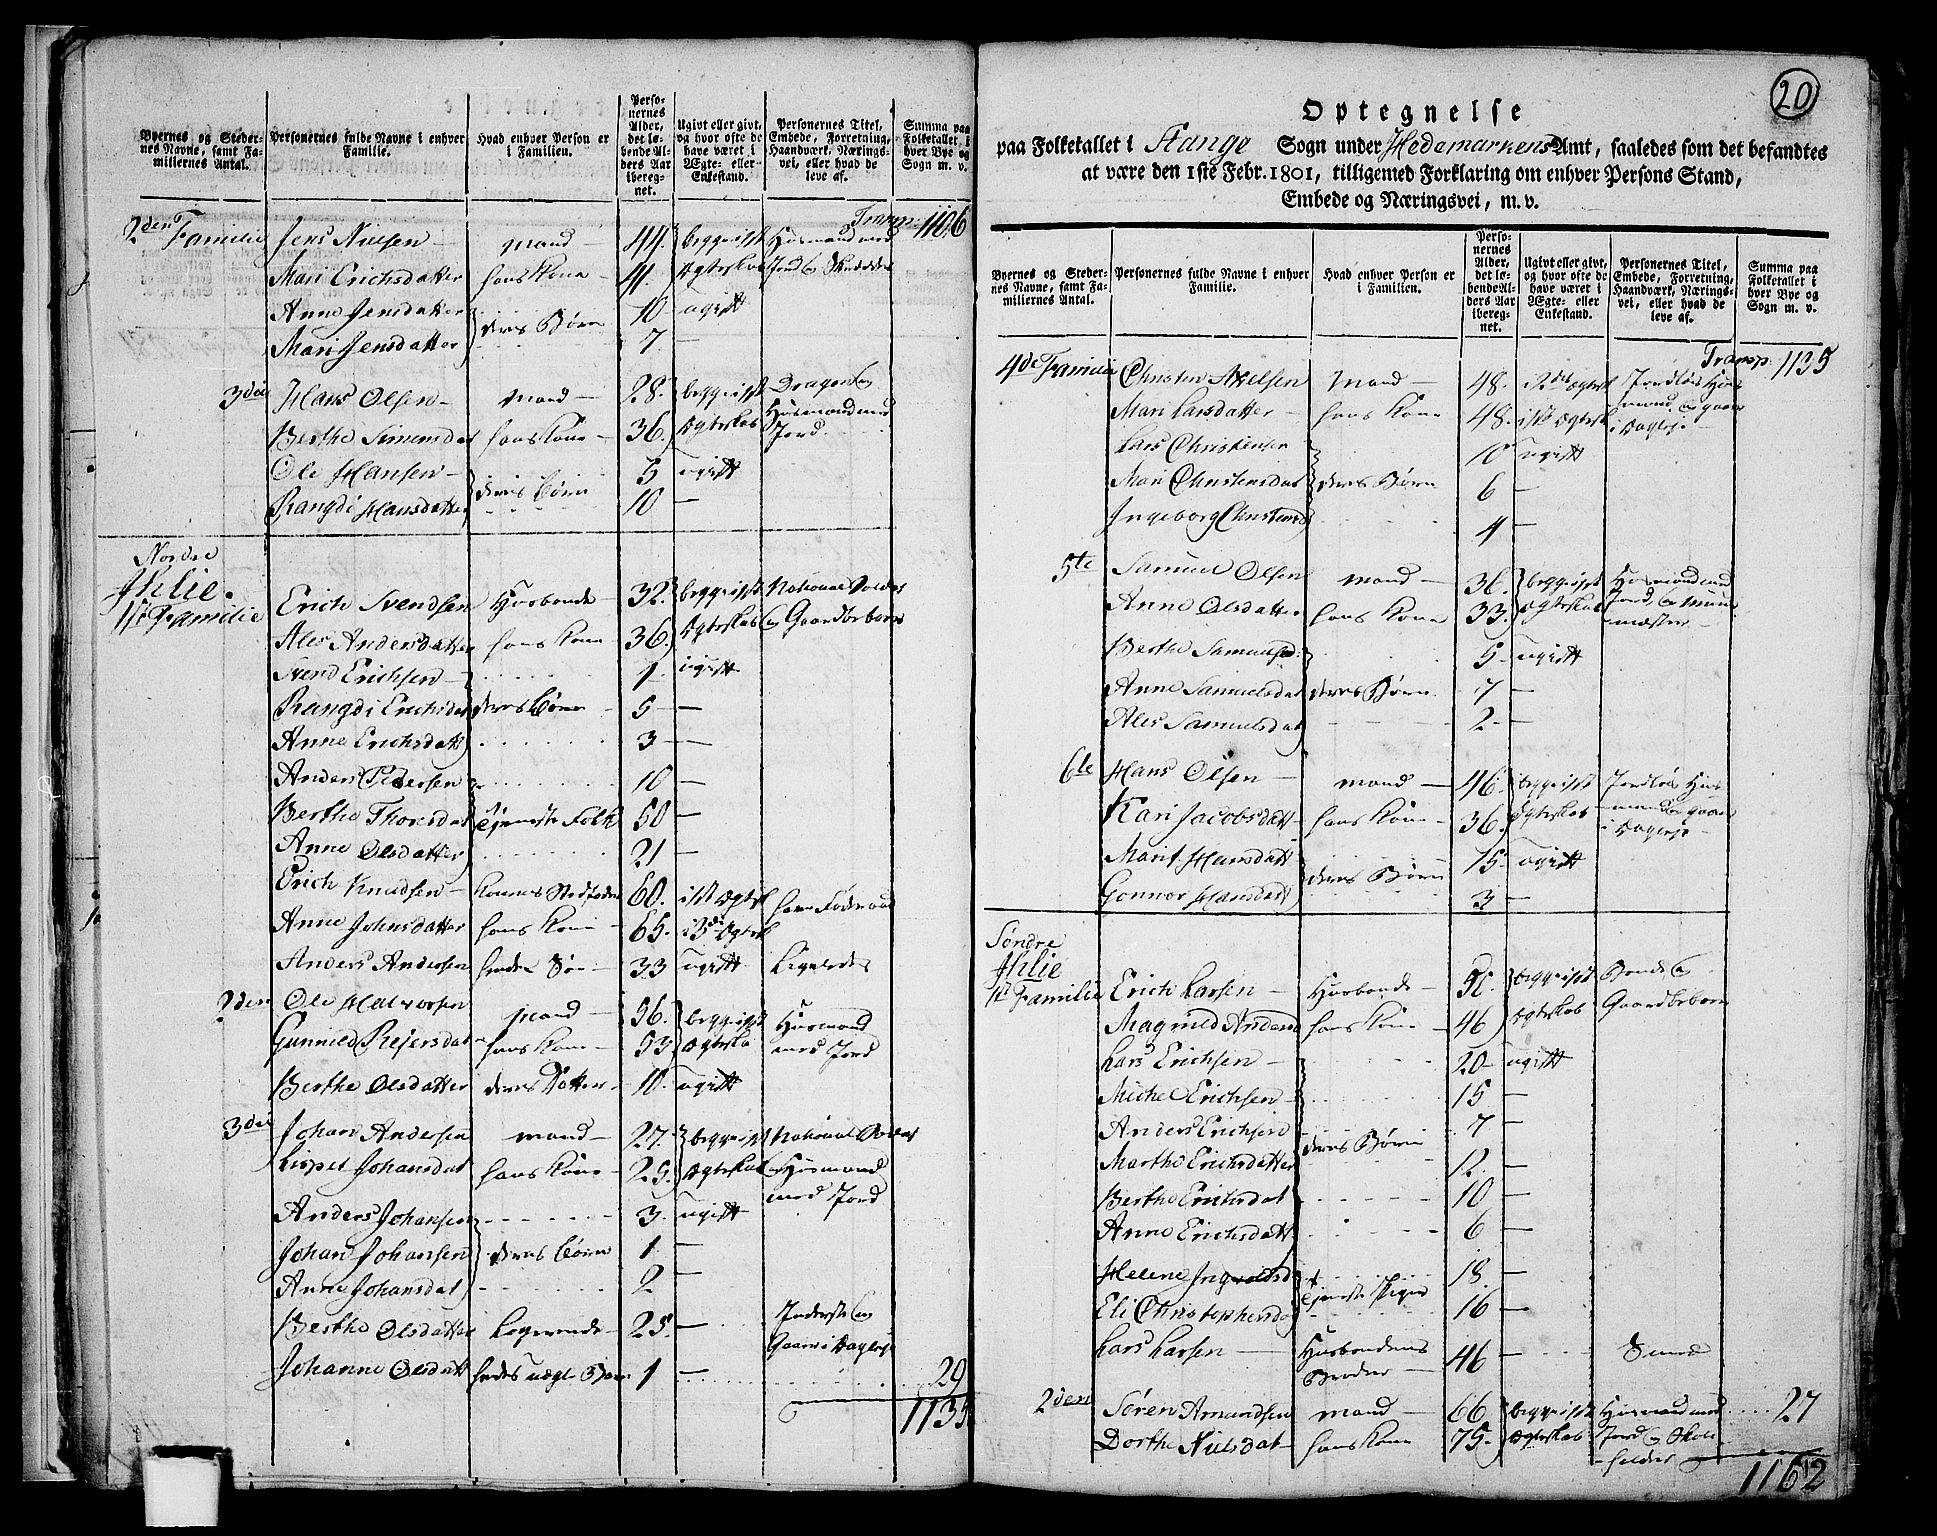 Byernes og Steder-
nes Navne, samt Fa-
miliernes Antal.
Personernes fulde Navne i enhver
Familie.
Hvad enhver Person er
i Familien.
Perso-
nernes
Alder,
det lø-
bende Al-
ders Aar
iberegnet.
Ugivt eller givt,
og hvor ofte de
have været i
Ægte- eller
Enkestand.
Personernes Titel,
Embede, Forretning,
Haandværk, Nærings-
vei, eller hvad de
leve af.
Summa paa
Folketallet i
hver Bye og
Sogn m. v.
Transp. 1106
2den Familie Jens Nielsen - mand - 44. begge i 1ste Huusmand med
Mari Erichsdatter hans Kone - 41. Ægteskab Jord og Skrædder
Anne Jensdatter 10 ugivt
Mari Jensdatter deres Børn 7 -
3die Hans Olsen - mand - 28. begge i 1ste Dragon og
Berthe Simensdat hans Kone - 36. Ægteskab Huusmand med Jord
Ole Hansen - 5 ugivt
Rangdi Hansdatter deres Børn 10 -
Nordre
Ihlie.
1ste Familie Erich Svendsen Huusbonde - 32. begge i 1ste National Soldat
Ales Andersdatter hans Kone 36. Ægteskab og Gaardbeboer
Svend Erichsen - 1 ugivt
Rangdi Erichsdat deres Børn 5 -
Anne Erichsdatt 3 -
Anders Pedersen 10 -
Berthe Thoresdat Tjeneste Folk 50 -
Anne Olsdatter 21 -
Erich Knudsen - Konens Stedfader 60. i 1ste Ægtesk
Anne Johnsdatter hans Kone - 65. i 3die Ægtesk
Anders Andersen hendes Søn - 33 ugivt Ligeledes
2den Ole Halvorsen mand - 56. begge i 1ste Huusmand
Gunnild Rejersdat hans Kone - 53 Ægteska med Jord
Berthe Olsdatter deres Datter - 10. ugivt
3die Johan Andersen mand - 27. begge i 1ste National Soldat
Lispet Johansdat hans Kone - 25. Ægteskab og Huusmand
med Jord
Anders Johansen 3. ugivt
Johan Johansen deres Børn 1 -
Anne Johansdat 2
Berthe Olsdatter Logerende - 25. - Inderste og
Gaaer i Dagleje
Johanne Olsdatt hendes uægte Barn 1 29
1135
20
Optegnelse
paa Folketallet i Stange Sogn under Hedemarkens Amt, saaledes som det befandtes
at være den 1ste Febr. 1801, tilligemed Forklaring om enhver Persons Stand,
Embede og Næringsvei, m. v.
Byernes og Steder-
nes Navne, samt Fa-
miliernes Antal.
Personernes fulde Navne i enhver
Familie.
Hvad enhver Person er
i Familien.
Perso-
nernes
Alder,
det lø-
bende Al-
ders Aar
iberegnet.
Ugivt eller givt,
og hvor ofte de
have været i
Ægte- eller
Enkestand.
Personernes Titel,
Embede, Forretning,
Haandværk, Nærings-
vei, eller hvad de
leve af.
Summa paa
Folketallet i
hver Bye og
Sogn m. v.
Transp. 1135
4de Familie Christen Axelsen mand - 48. Jordløs Huus
Mari Larsdatter - hans Kone 48. i 1ste Ægtesk mand og gaaer
i Dagleje
Lars Christensen 10 ugivt
Mari Christensdat deres Børn 6 -
Ingeborg Christensd 4 -
5te Samuel Olsen mand - 36. begge i 1ste Huusmand med
Anne Olsdatter hans Kone 33. Ægteskab Jord og Muur
mæster
Berthe Samuelsd: 5 - ugivt
Anne Samuelsdat deres Børn 7 -
Ales Samuelsdat 2 -
6te Hans Olsen - mand - 46. begge i 1ste Jordløs Huus
Kari Jacobsdatt - hans Kone - 36. Ægteskab mand og gaaer
i Dagleje
Marit Hansdatt 15 - ugivt
Gonnor Hansdatt deres Børn 3 -
Søndre
Ihlie
1ste Familie Erich Larsen - Huusbonde - begge i 1ste Bonde og
Magnild Andersd hans Kone - 46 Ægteskab Gaardbeboer
Lars Erichsen - 20 - ugivt
Michel Erichsen - 15 -
Anders Erichsen 7 -
Marthe Erichsdatter deres Børn 12 -
Berthe Erichsdat 10 -
Anne Erichsdatt 6 -
Helene Ingvoldsd 18 -
Eli Christophersdat Tjeneste Piger 16 -
Lars Larsen - Huusbondens
Broder 46 Smed
2den Søren Amundsen mand - 66 begge i 1ste Huusmand med 27
Dorthe Nielsdat - hans Kone 75. Ægteskab Jord og Skole-
holder
1162